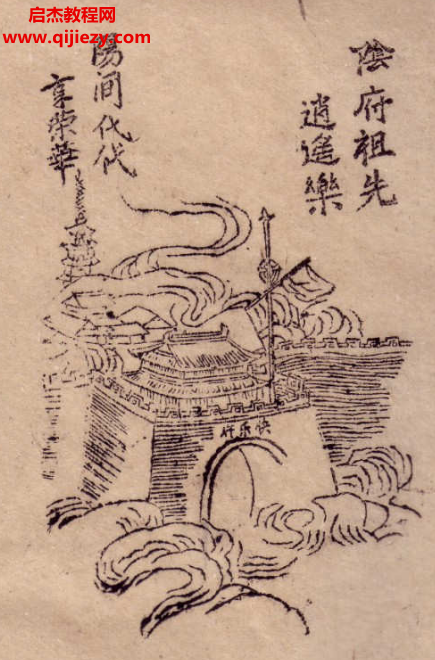 启杰教程网
www.qijiezy.com
陰府祖先
逍遙樂
陽间代代
享榮華
快乐